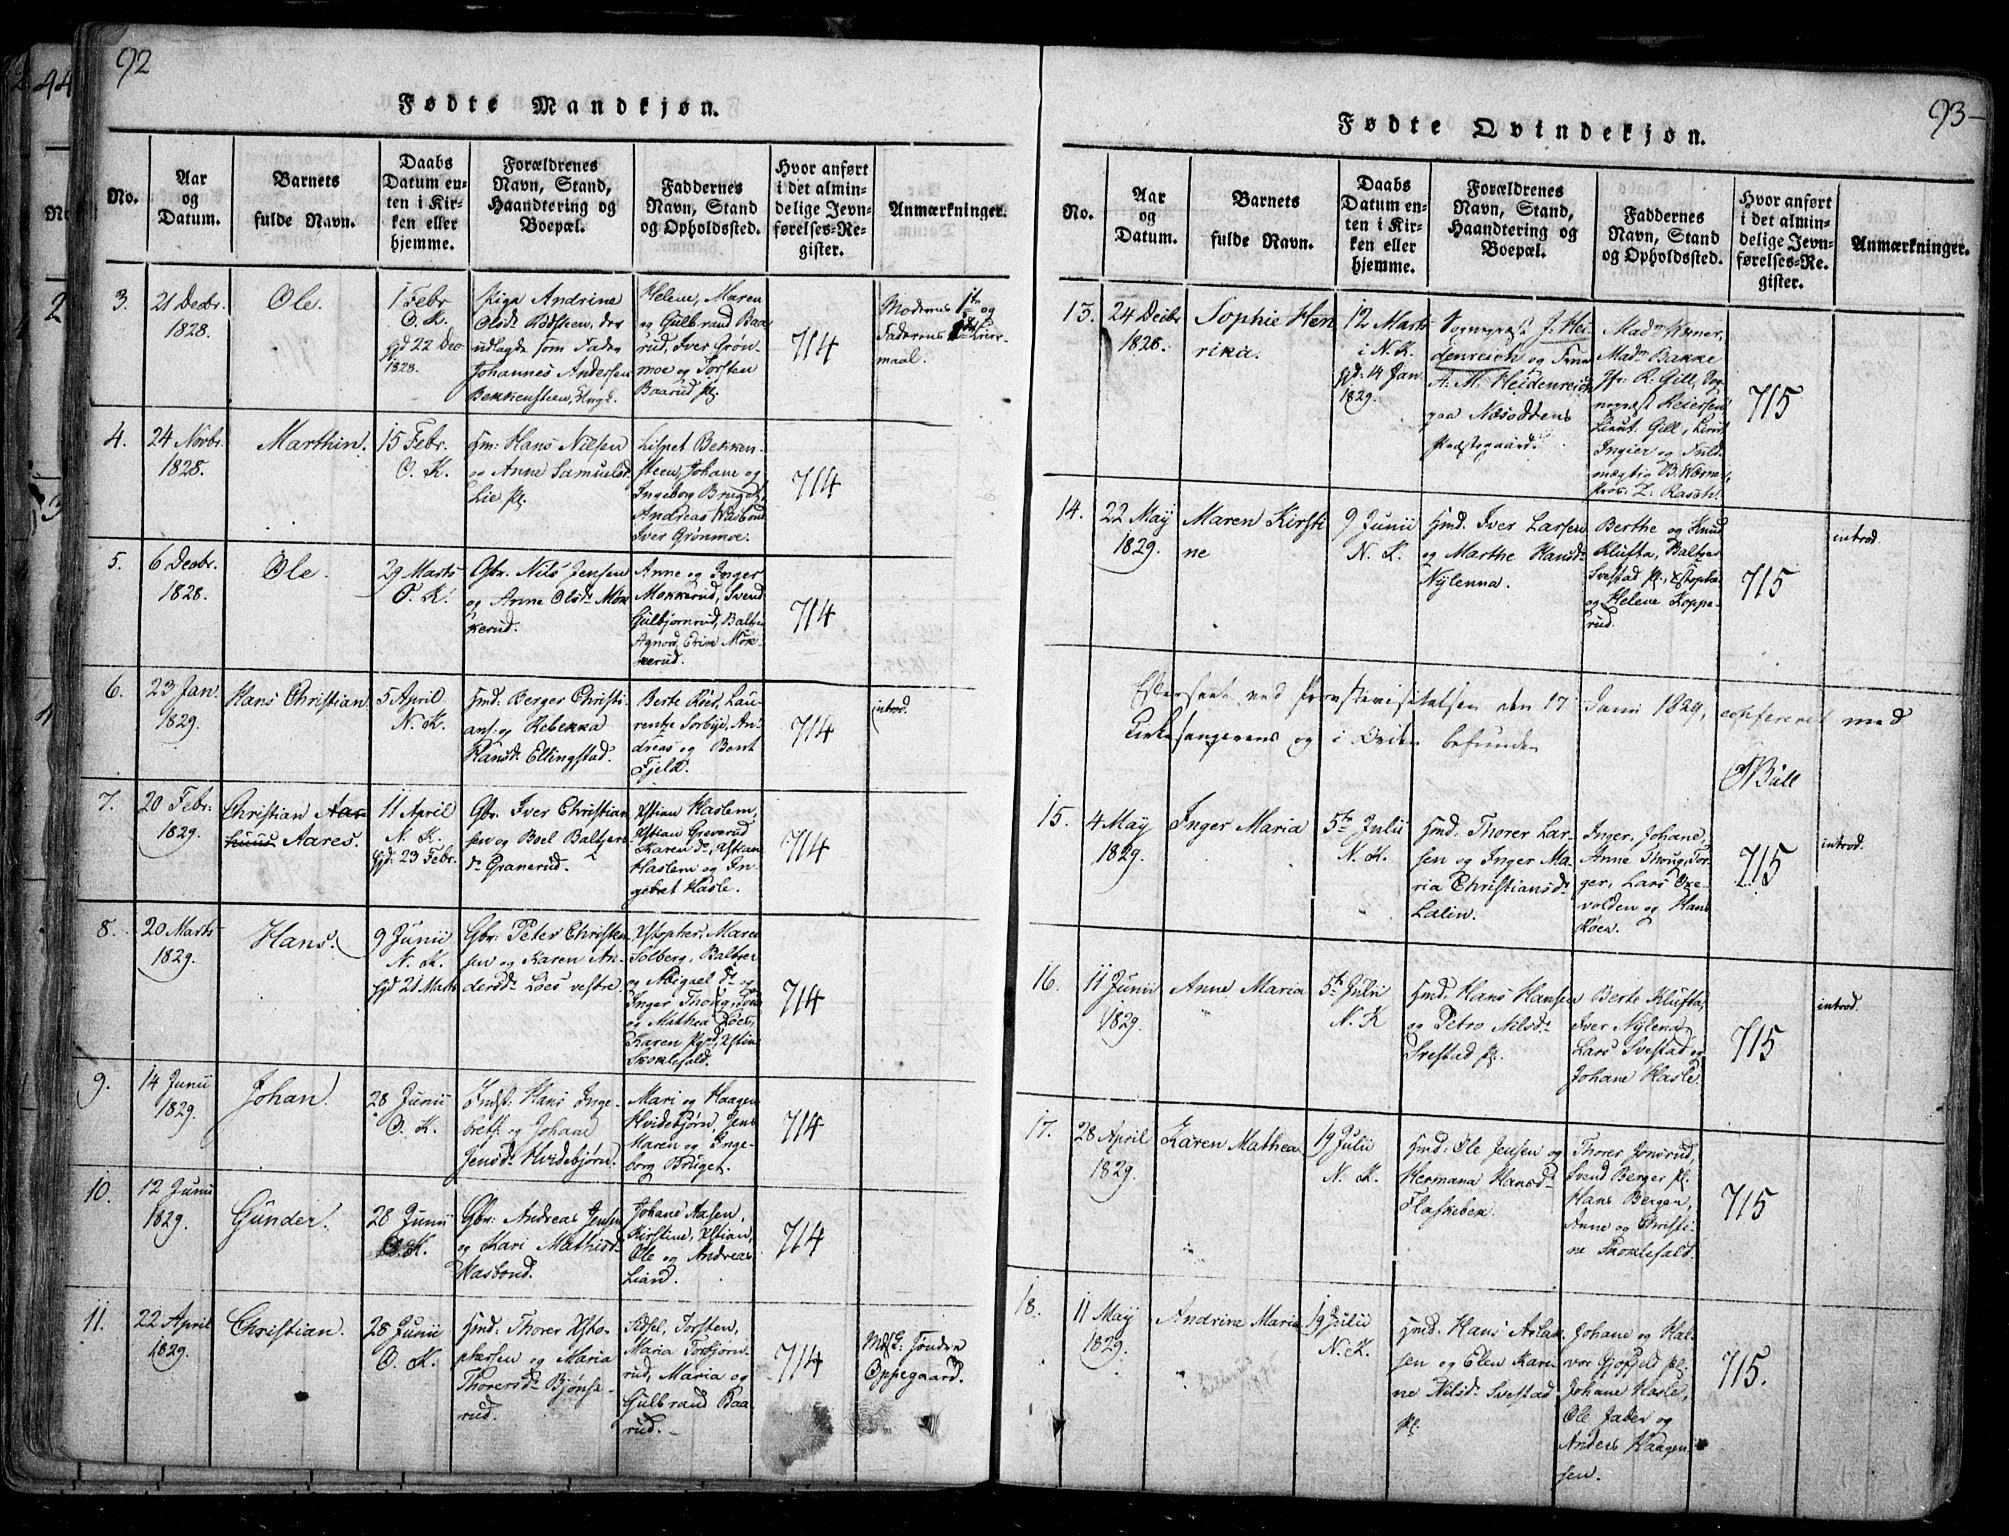 92
Fødte Mandkjøn.
No.
Aar
og
Datum.
Barnets
fulde Navn.
Daabs
Datum en-
ten i Kir-
ken eller
hjemme.
Forældrenes
Navn, Stand,
Haandtering og
Boepæl.
Faddernes
Navn, Stand
og Opholdssted.
Hvor anført
i det almin-
delige Jevn-
førelses-Re-
gister.
Anmærkninger.
3.
21 Decbr.
1828.
Ole.
1 Febr
O. K.
hjd 22 Dec
1828.
Piga Andrine
Olsdr Rødsteen, der
udlagde som Fader
Johannes Andersen
Bekkensteen, Ungk.
Helene, Maren
og Gulbrand Baa
rud, Iver Grøn-
moe og Torsten
Baarud pl.
714
Moderens 1te og
Faderens Leier-
maal.
4.
24 Novbr.
1828.
Marthin.
15 Febr.
O. K.
Hmd: Hans Nilsen
og Anne Samuelsdr
Lie pl.
Lispet Bekken-
steen, Johane og
Ingeborg Bruget,
Andreas Wasbond
Iver Grønmoe.
714
5.
6 Decbr.
1828.
Ole.
29 Marts
O. K.
Gbr. Nils Jensen
og Anne Olsdr Mok
kerud.
Anne og Inger
Mokkerud, Svend
Gulbjørnrud, Baltzer
Agnor, Erik Mok-
kerud.
714
6.
23 Jan.
1829.
Hans Christian
5 April
N. K.
Hmd. Berger Christi
ans: og Rebekka
Hansdr Ellingstad.
Berte Röer, Lau-
rente Sorbye, An-
dreas og Bent
Fjeld.
714
introd.
7.
20 Febr.
1829.
Christian Aar-
huus Aares.
11 April
N. K.
hjd: 23 Febr.
Gbr. Iver Christian
sen og Boel Baltzers
dr Granerud.
Xstian Haslem,
Xstian Greverud
Karen do, Xstian
Haslem og In-
gebret Hasle.
714
8.
20 Marts
1829.
Hans.
9 Junii
N. K.
hjd 21 Marts
Gbr: Peter Christen
sen og Karen An-
dersdr Löes vestre.
Xstopher, Maren
Solberg, Baltzer
og Abigael do og
Inger Thoug
og Mathea Röer,
Karen
Skoklefald.
714
9.
14 Junii
1829.
Johan.
28 Junii
O. K.
Indst. Hans Inge-
brets: og Johane
Jensdr Hvidebjørn.
Mari og Haagen
Hvidebjørn, Jens
Maren og Inge-
borg Bruget.
714
10.
12 Junii
1829.
Gunder.
28 Junii
O. K.
Gbr: Andreas Jensen
og Kari Mathisdr
Wasbond.
Johane Aasen,
Kirstine, Xstian,
Ole og Andreas
Liand.
714
11.
22 April
1829.
Christian.
28 Junii
O. K.
Hmd: Thorer Xsto-
phersen og Maria
Thorersdr Bjønsæ-
rud.
Sidsel, Torsten,
Maria Torbjørn-
rud, Maria og
Gulbrand Baa-
rud.
714
Oppegaard.
93
Fødte Qvindekjøn.
No.
Aar
og
Datum.
Barnets
fulde Navn.
Daabs
Datum en-
ten i Kir-
ken eller
hjemme.
Forældrenes
Navn, Stand,
Haandtering og
Boepæl.
Faddernes
Navn, Stand
og Opholdssted.
Hvor anført
i det almin-
delige Jevn-
førelses-Re-
gister.
Anmærkninger.
13.
24 Decbr
1828.
Sophie Hen
rika.
12 Marts
i N. K.
hjd: 14 Jan
1829.
Sognepræst J. Hei
denreich og Frue
A. M. Heidenreich
paa Næsoddens
Præstegaard.
Madm Werner,
Madm Bakke
Jfr: R. Gill, Sog-
nepræst Reiersen
Lieut. Gill, Lieut
Ingier og Fuld-
mægtig B. Werner,
Prov: L. Rasch.
715
14.
22 May
1829.
Maren Kirsti
ne
9 Junii
N. K.
Hmd. Iver Larsen
og Marthe Hansdr
Nylenna.
Berthe og Knud
Klufta, Baltzer
Svestad pl., Xstopher
og Helene Koppe-
rud.
715
introd.
Efterseet ved Provstevisitatsen den 17 Juni 1829, confereret med
Kirkesangerens og i Orden befunden
Bull
15.
4 May
1829.
Inger Maria
5te Julii
N. K.
Hmd: Thorer Lar-
sen og Inger Ma-
ria Christiansdr
Lalin.
Inger, Johane,
Anne Thoug, Tor-
ger, Lars Oxe-
volden og Hans
Röer.
715
introd.
16.
11 Junii
1829.
Anne Maria
5te Julii
N. K
Hmd. Hans Hansen
og Petro Nilsdr
Svestad pl.
Berte Klufta,
Iver Nylena
Lars Svestad og
Johane Hasle.
715
introd.
17.
28 April
1829.
Karen Mathea
19 Julii
N. K.
Hmd: Ole Jensen og
Hermana Hansdr
Flaskebek.
Thorer Jonsrud,
Svend Berger pl.
Hans Bergen,
Anne og Christi-
ne Skoklefald.
715
18.
11 May
1829.
Andrine Maria
19 Julii
N. K.
Hmd. Hans Aslak-
sen og Elen Kari-
ne Nilsdr Svestad
pl.
Johane og Hal-
vor Gjøfjeld pl.
Johane Hasle,
Ole Jaber og
Anders Haagen-
sen.
715.